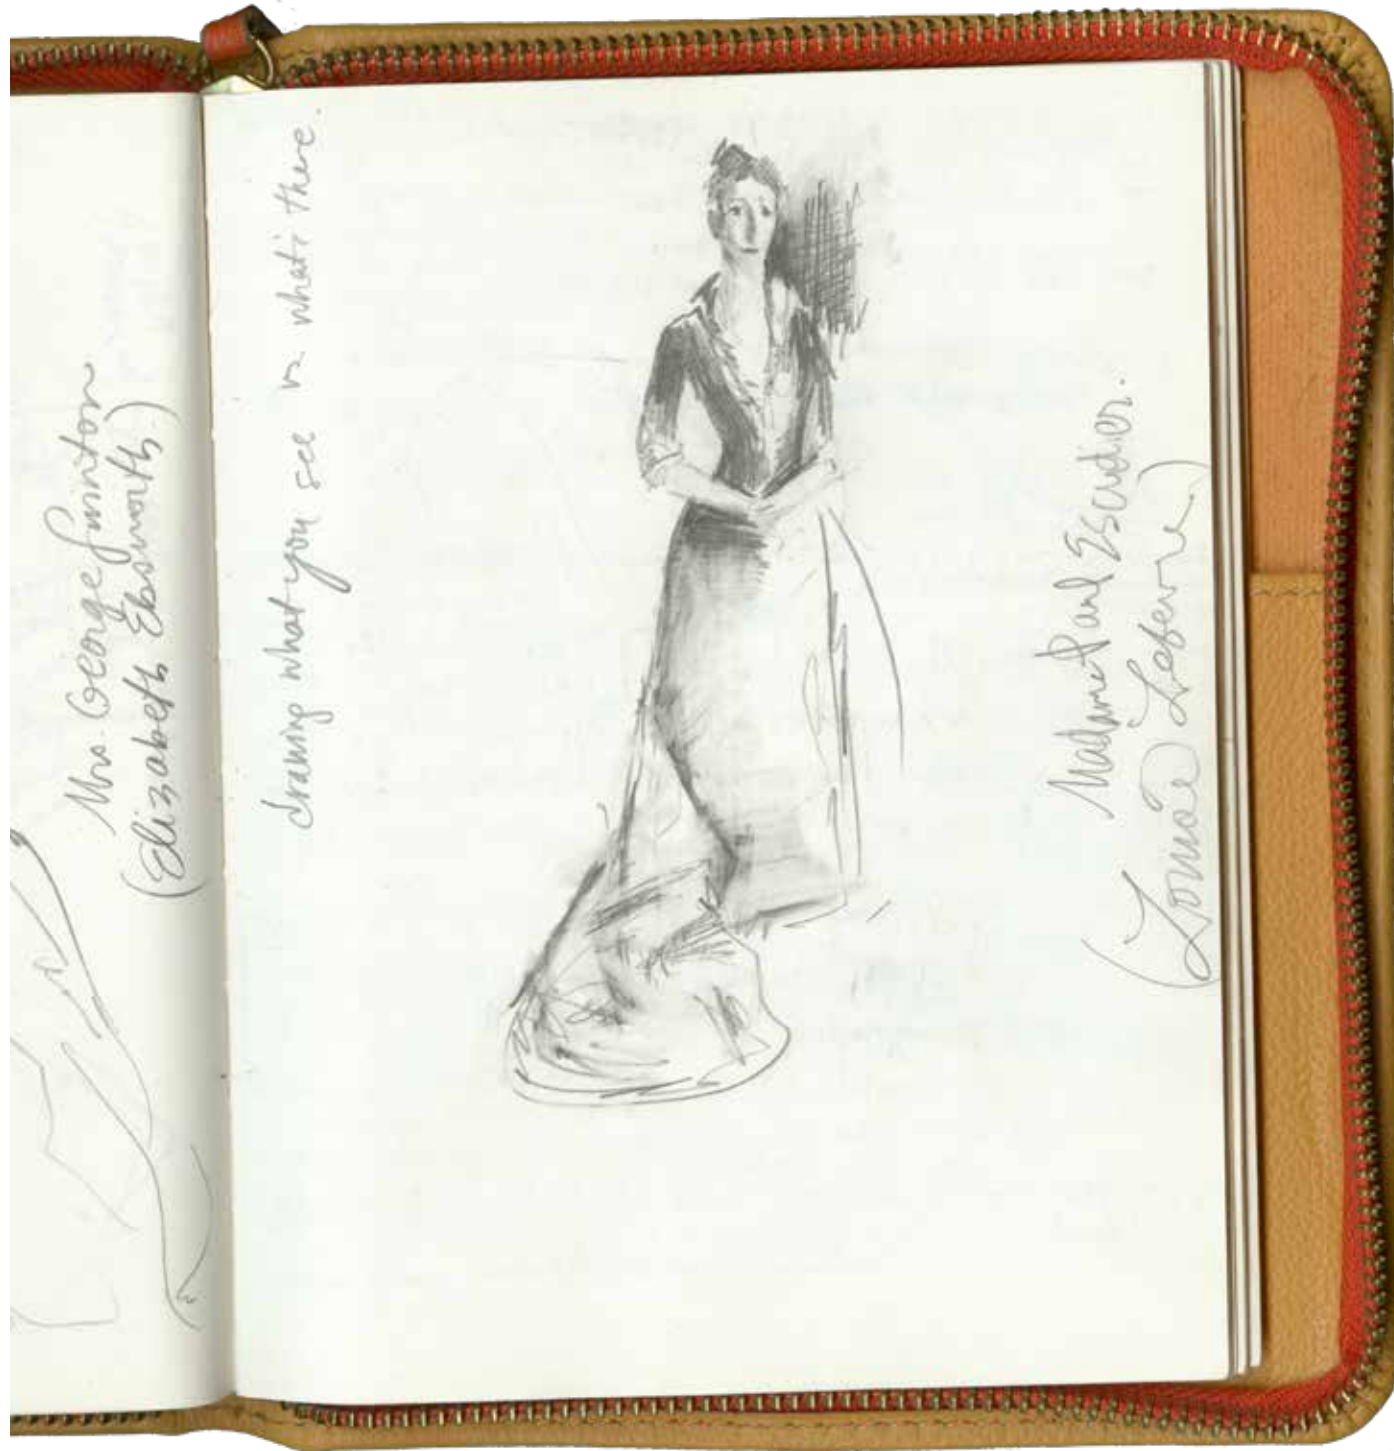 Mrs. George Swinton
(Elizabeth Ebsworth)
drawing what you see what's there.
Madame Paul Escudier.
(Louise Lefevre)